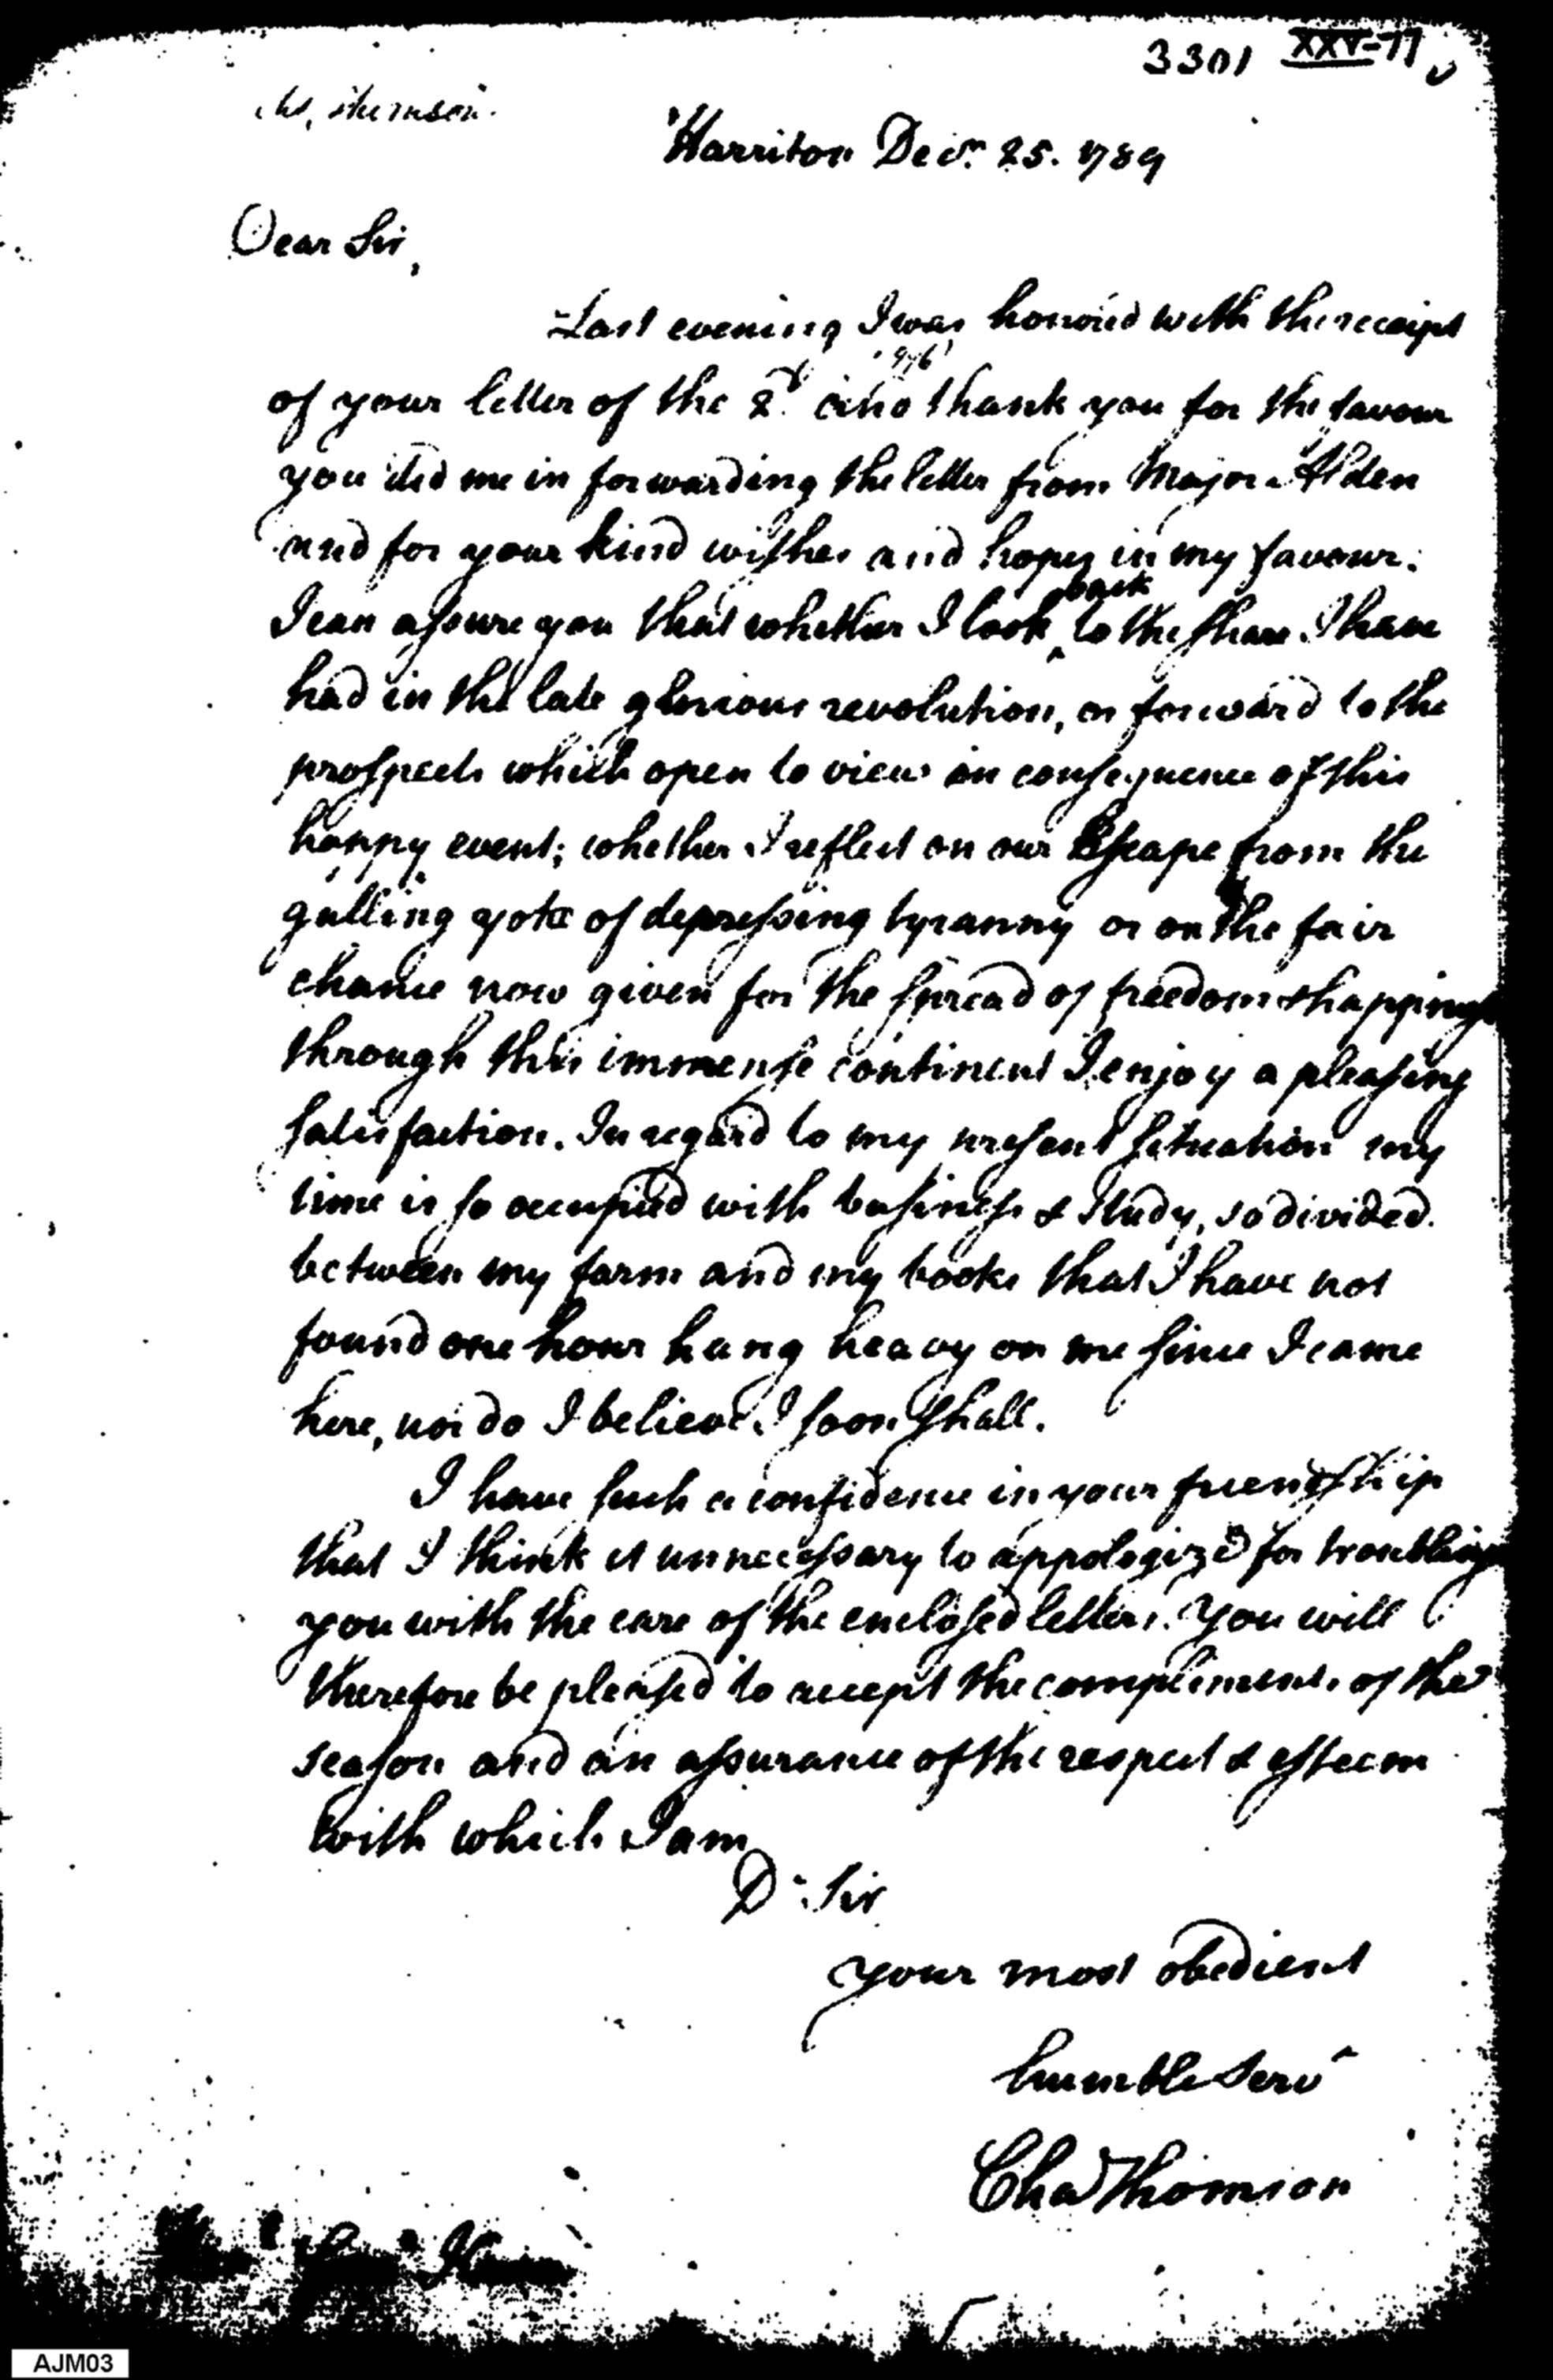 3301 XXV-77
Harriton Decr. 25. 1789
Dear Sir,
Last evening I was honored with the receipt
of your letter of the 2d. and thank you for the favour
you did me in forwarding the letter from Major Alden
and for your kind wishes and hopes in my favour.
I can assure you that whether I look back to the share I have
had in the late glorious revolution, or forward to the
prospects which open to view in consequence of this
happy event; whether I reflect on our Escape from the
galling yoke of depressing tyranny or on the fair
chance now given for the spread of freedom & happiness
through this immense continent I enjoy a pleasing
satisfaction. In regard to my present situation my
time is so occupied with business & Study, so divided
between my farm and my books that I have not
found one hour hang heavy on me since I came
here, nor do I believe I soon shall.
I have such a confidence in your friendship
that I think it unnecessary to appologize for troubling
you with the care of the enclosed letters. You will
therefore be pleased to accept the compliments of the
season and an assurance of the respect & esteem
with which I am
Dr. Sir
your most obedient
humble Serv
Cha Thomson
AJM03